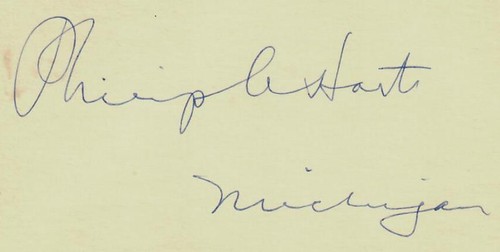 Philip A Hart
Michigan